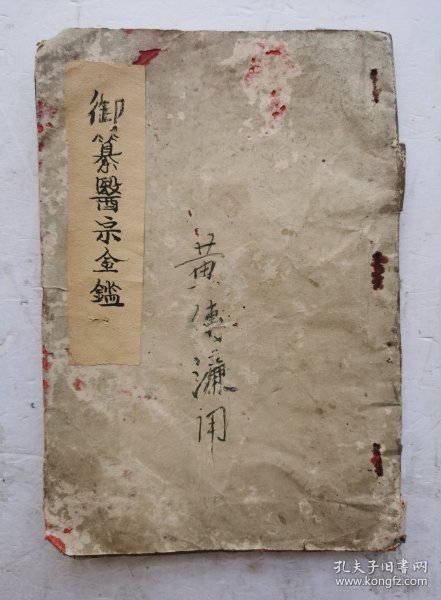 御纂醫宗金鑑
黄傳濂用
孔夫子旧书网
www.kongfz.com